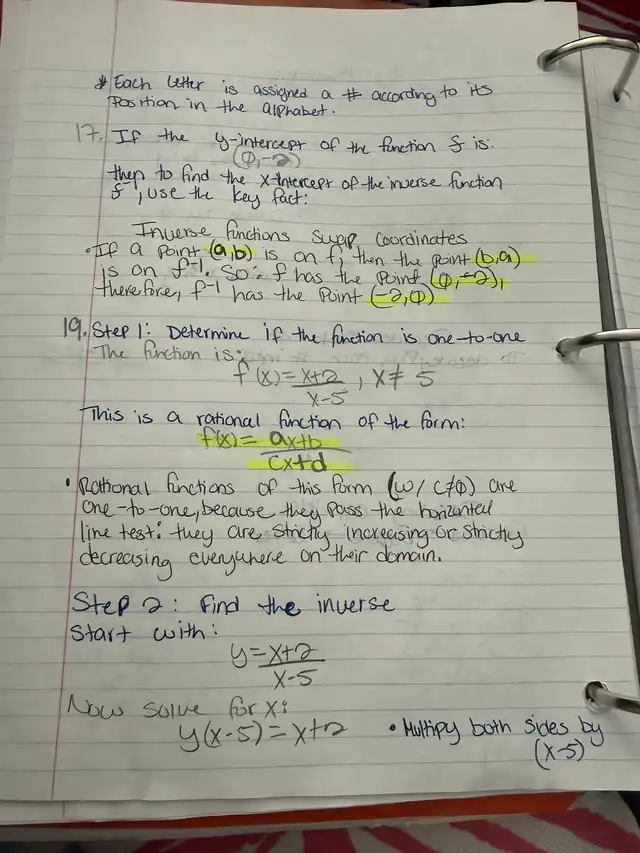 * Each letter is assigned a # according to its
Position in the alphabet.
17. If the y-intercept of the function f is:
(0,-2)
then to find the x-intercept of the inverse function
f⁻¹, use the key fact:
Inverse functions swap coordinates
• If a point (a,b) is on f, then the point (b,a)
is on f⁻¹. So: f has the point (0,-2),
therefore, f⁻¹ has the point (-2,0)
19. Step 1: Determine if the function is one-to-one
The function is:
f(x)= x+2 / x-5 , x≠5
This is a rational function of the form:
f(x)= ax+b / cx+d
• Rational functions of this form (w/ c≠0) are
one-to-one, because they pass the horizontal
line test: they are strictly increasing or strictly
decreasing everywhere on their domain.
Step 2: Find the inverse
Start with:
y= x+2 / x-5
Now solve for x:
y(x-5)=x+2 • Multipy both sides by
(x-5)